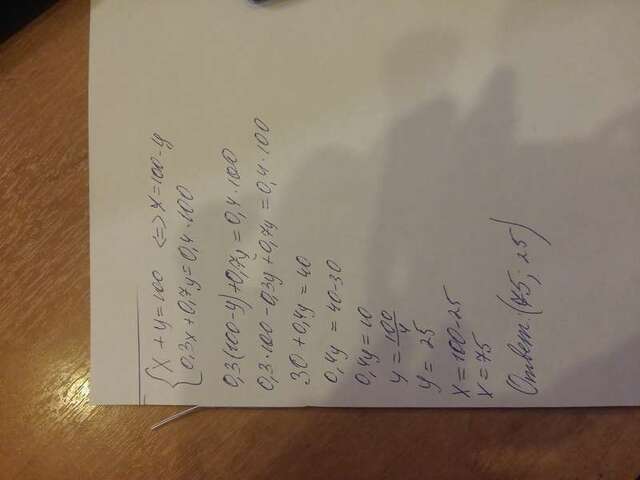 { x + y = 100 <=> x = 100 - y
0,3x + 0,7y = 0,4 · 100
0,3(100 - y) + 0,7y = 0,4 · 100
0,3 · 100 - 0,3y + 0,7y = 0,4 · 100
30 + 0,4y = 40
0,4y = 40 - 30
0,4y = 10
y = 100/4
y = 25
x = 100 - 25
x = 75
Ответ: (75; 25)